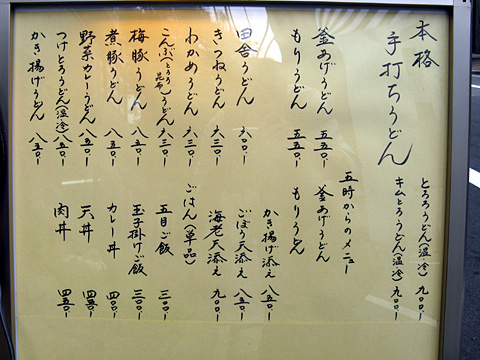 本格
手打ちうどん
釜あげうどん 五五〇-
もりうどん 五五〇-
田舎うどん 六〇〇-
きつねうどん 六三〇-
わかめうどん 六三〇-
こんぶ(とろろ昆布)うどん 六三〇-
梅豚うどん 八五〇-
煮豚うどん 八五〇-
野菜カレーうどん 八五〇-
つけとろうどん(温冷) 八五〇-
かき揚げうどん 八五〇-
とろろうどん(温冷) 九〇〇-
キムとろうどん(温冷) 九〇〇-
五時からのメニュー
釜あげうどん
もりうどん
かき揚げ添え 八五〇-
ごぼう天添え 八五〇-
海老天添え 九〇〇-
ごはん(単品)
五目ご飯 三〇〇-
玉子掛けご飯 三〇〇-
カレー丼 四〇〇-
天丼 四五〇-
肉丼 四五〇-